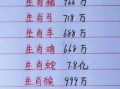 生肖猪 966万
生肖马 718万
生肖羊 688万
生肖鸡 668万
生肖蛇 7.8亿
生肖猴 999万